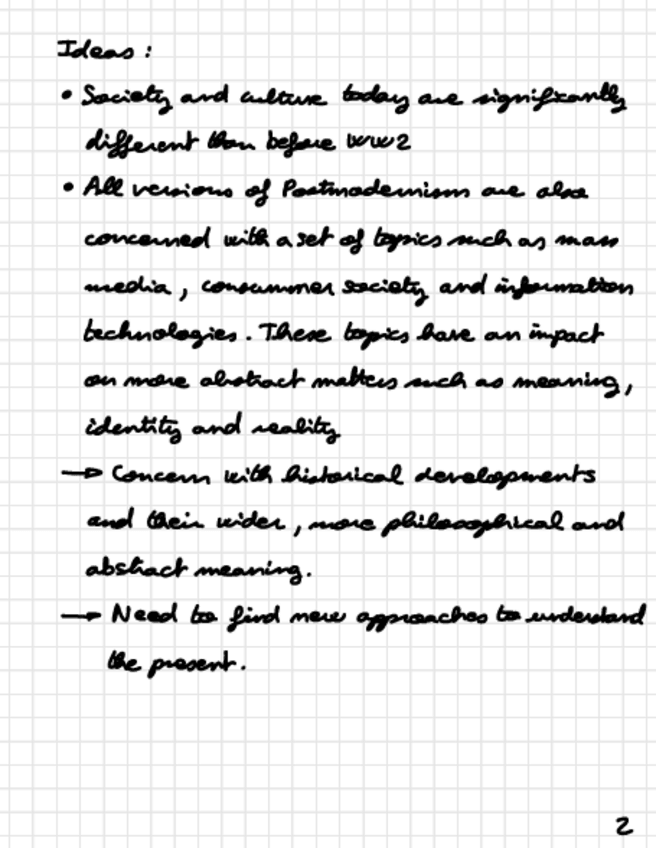 Ideas :
• Society and culture today are significantly
different than before WW2
• All versions of Postmodernism are also
concerned with a set of topics such as mass
media, consummer society and information
technologies. These topics have an impact
on more abstract matters such as meaning,
identity and reality
→ Concern with historical developments
and their wider, more philosophical and
abstract meaning.
→ Need to find new approaches to understand
the present.
2